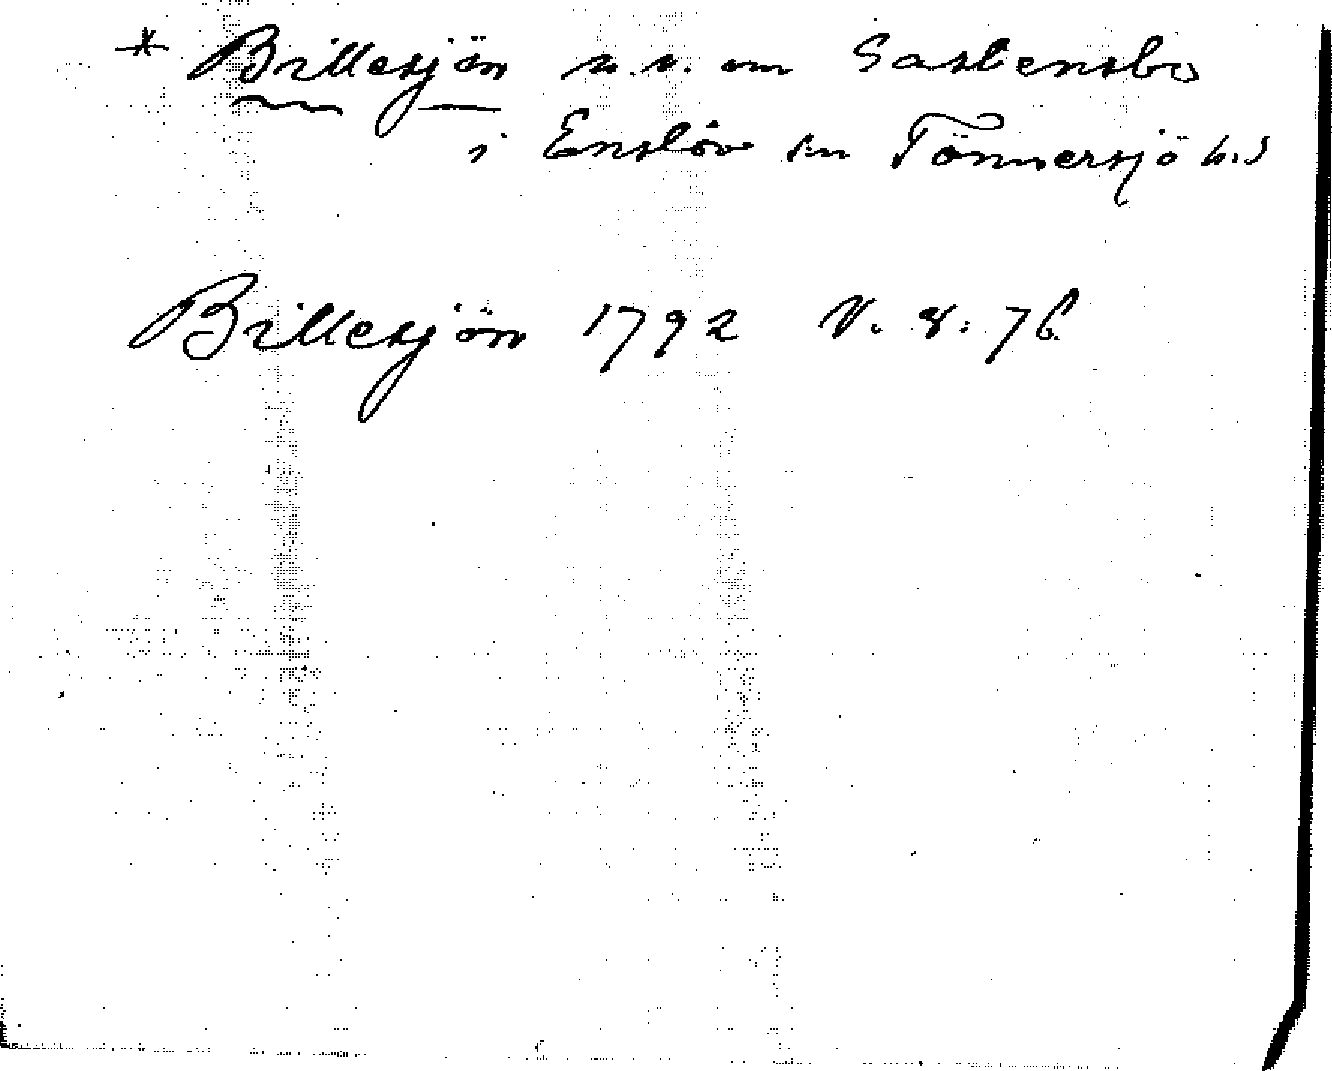 * Brillesjön n.v. om Gastensbo
i Enslöv sn Tönnersjö hd
Brillesjön 1792 V. 8: 76